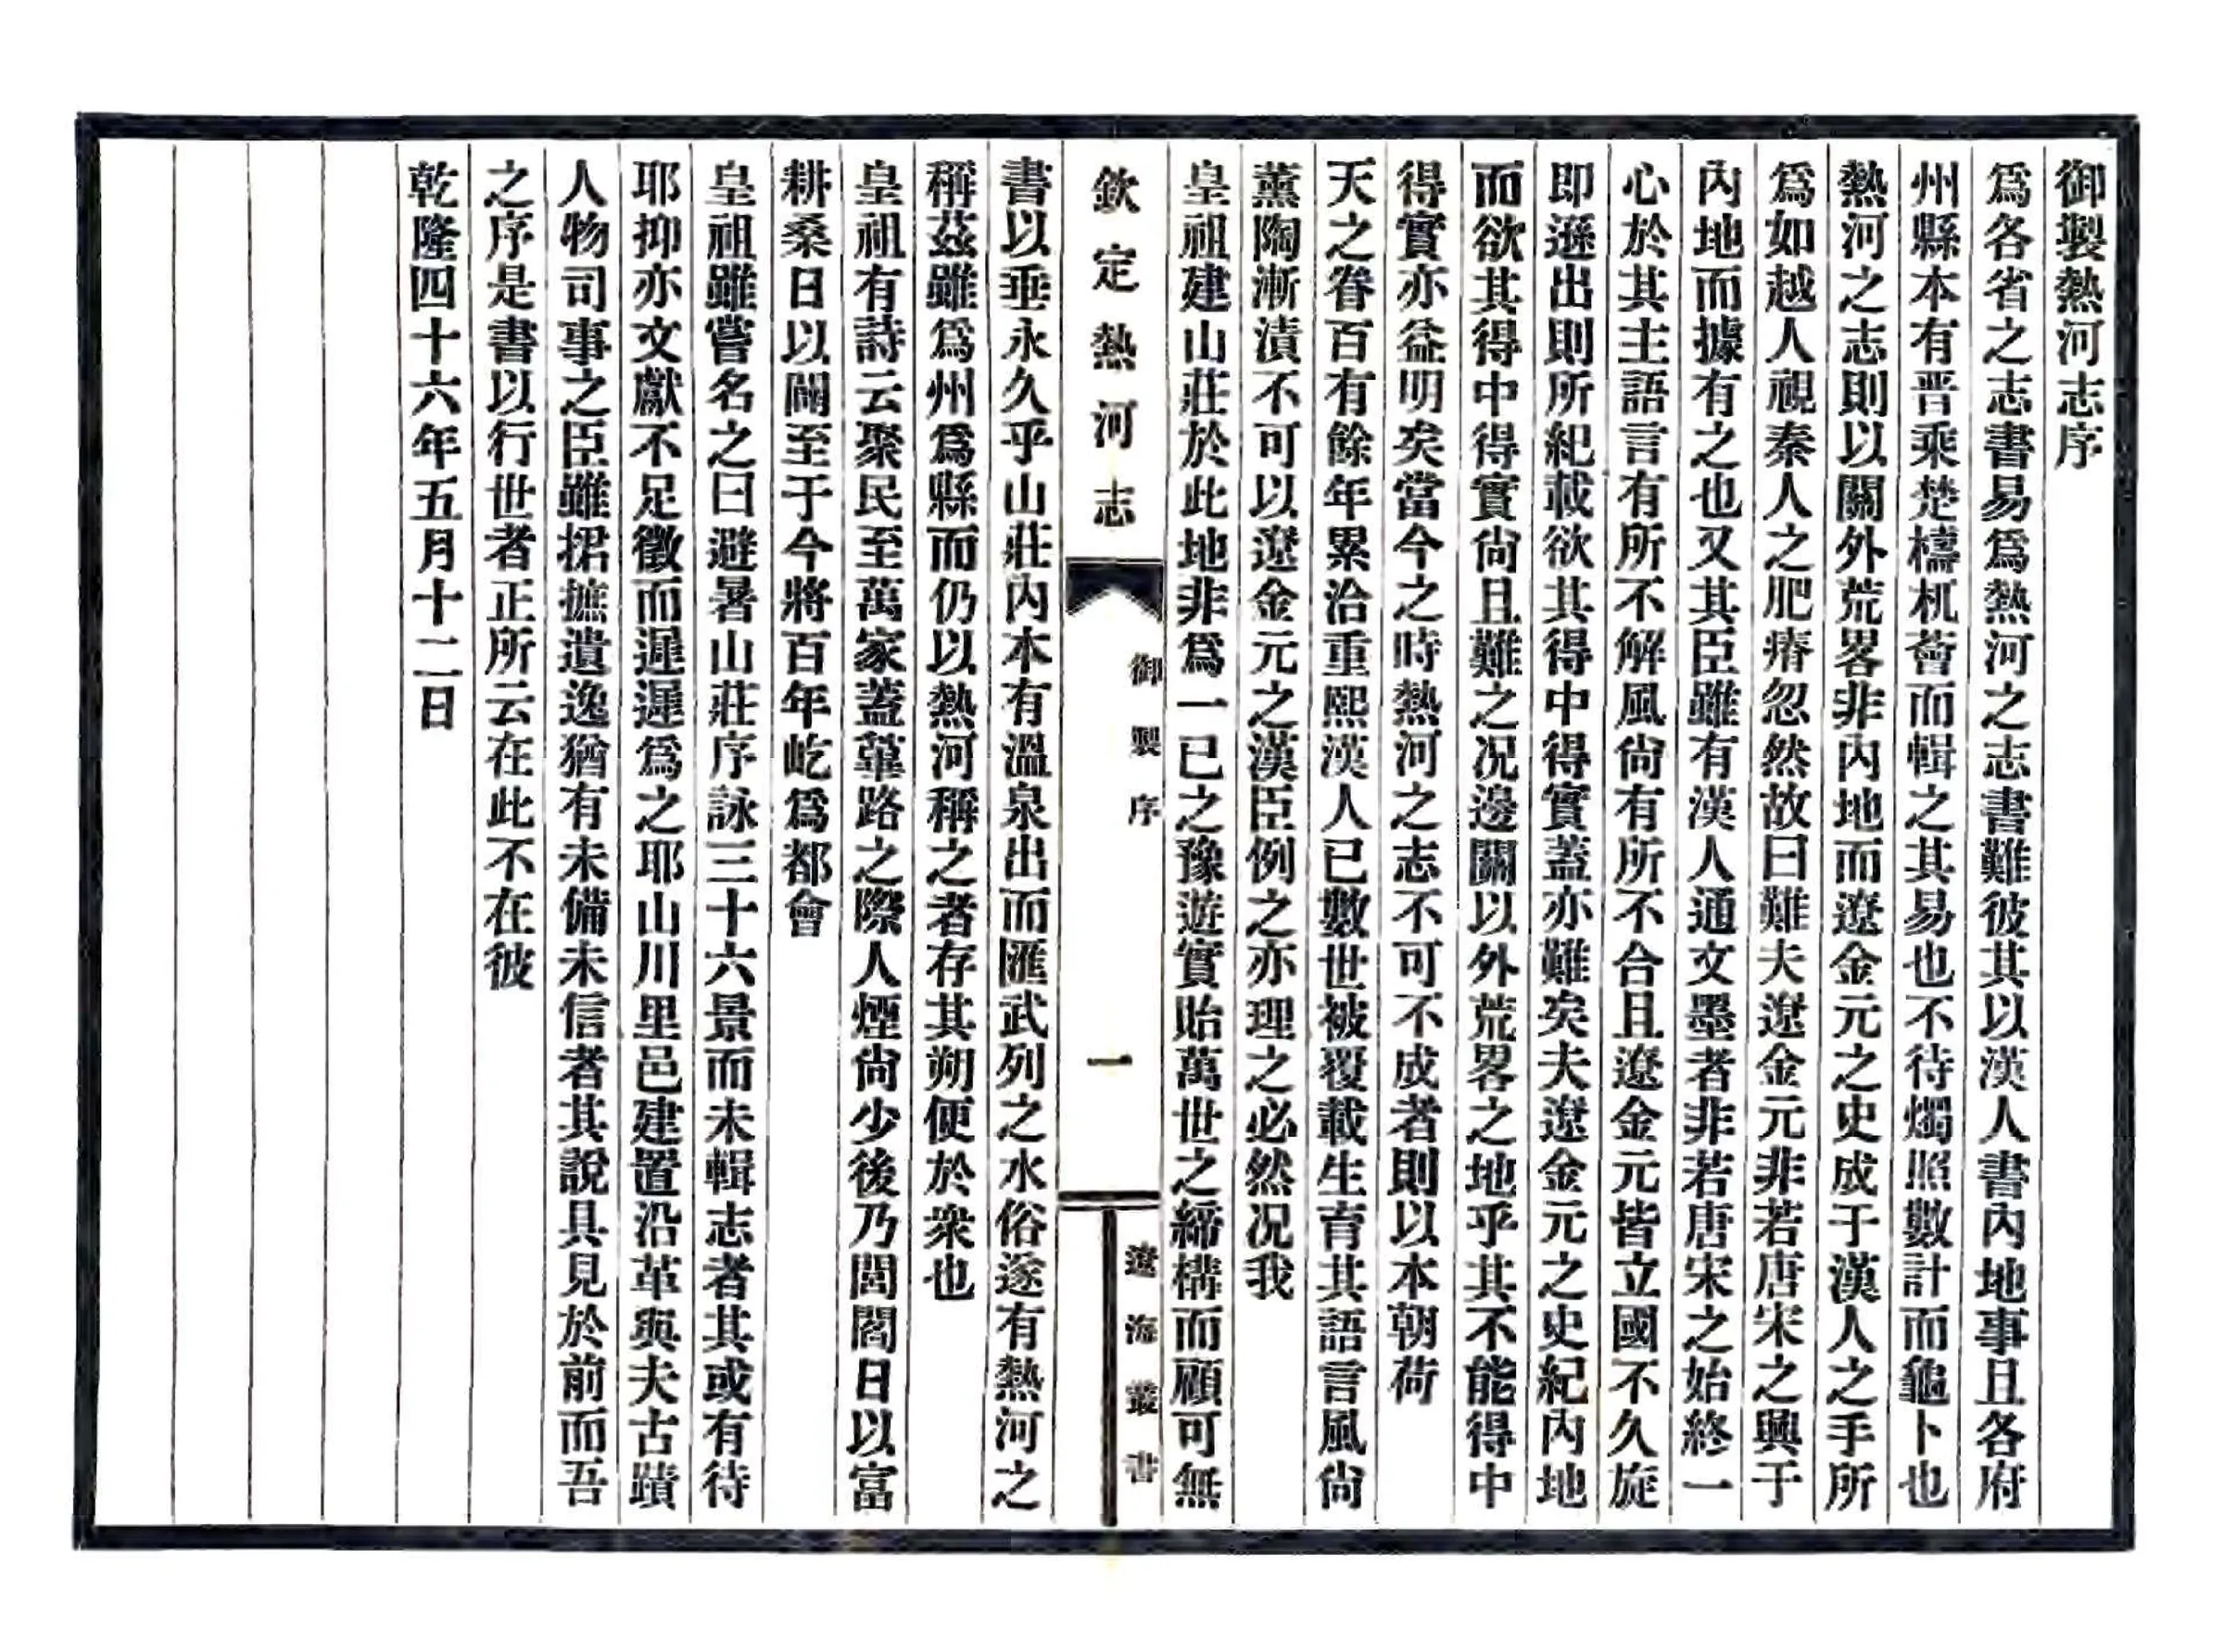 御製熱河志序
爲各省之志書易爲熱河之志書難彼其以漢人書內地事且各府
州縣本有晋乘楚檮杌薈而輯之其易也不待燭照數計而龜卜也
熱河之志則以關外荒畧非內地而遼金元之史成于漢人之手所
爲如越人視秦人之肥瘠忽然故曰難夫遼金元非若唐宋之興于
內地而據有之也又其臣雖有漢人通文墨者非若唐宋之始終一
心於其主語言有所不解風尙有所不合且遼金元皆立國不久旋
即遜出則所紀載欲其得中得實蓋亦難矣夫遼金元之史紀內地
而欲其得中得實尙且難之况邊關以外荒畧之地乎其不能得中
得實亦益明矣當今之時熱河之志不可不成者則以本朝荷
天之眷百有餘年累洽重熙漢人已數世被覆載生育其語言風尙
薰陶漸漬不可以遼金元之漢臣例之亦理之必然况我
皇祖建山莊於此地非爲一已之豫遊實貽萬世之締構而顧可無
欽定熱河志
御製序
一
遼海叢書
書以垂永久乎山莊內本有溫泉出而匯武列之水俗遂有熱河之
稱茲雖爲州爲縣而仍以熱河稱之者存其朔便於衆也
皇祖有詩云聚民至萬家蓋蓽路之際人煙尙少後乃閭閻日以富
耕桑日以闢至于今將百年屹爲都會
皇祖雖嘗名之曰避暑山莊序詠三十六景而未輯志者其或有待
耶抑亦文獻不足徵而遲遲爲之耶山川里邑建置沿革與夫古蹟
人物司事之臣雖捃摭遺逸猶有未備未信者其說具見於前而吾
之序是書以行世者正所云在此不在彼
乾隆四十六年五月十二日